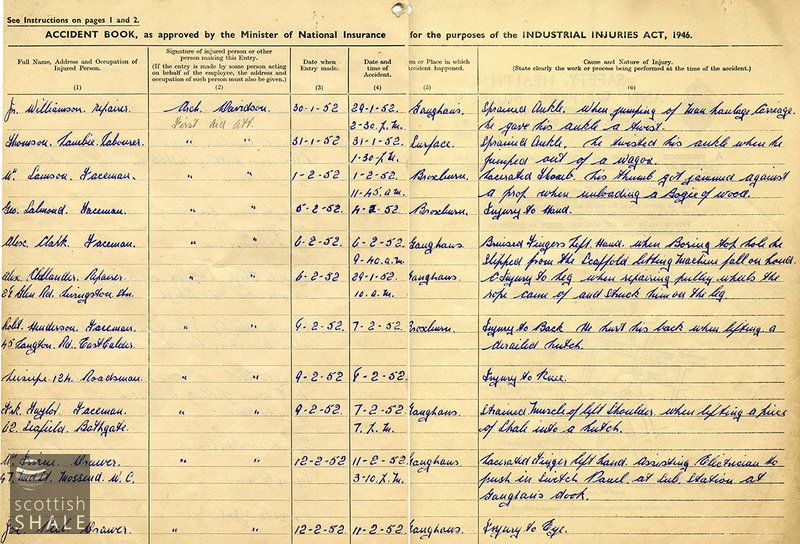 See Instructions on pages 1 and 2.
ACCIDENT BOOK, as approved by the Minister of National Insurance for the purposes of the INDUSTRIAL INJURIES ACT, 1946.
Full Name, Address and Occupation of Injured Person.
(1)
Signature of injured person or other person making this Entry.
(If the entry is made by some person acting on behalf of the employee, the address and occupation of such person must also be given.)
(2)
Date when Entry made.
(3)
Date and time of Accident.
(4)
or Place in which accident happened.
(5)
Cause and Nature of Injury.
(State clearly the work or process being performed at the time of the accident.)
(6)
Js. Williamson. repairer. Arch. Davidson. 30-1-52 29-1-52. Gaughans. Sprained Ankle. when jumping of Man haulage Carriage.
First Aid Att. 2-30. P.M. he gave his ankle a twist.
Thomson. Labourer. " " 31-1-52 31-1-52. Surface. Sprained Ankle. he twisted his ankle when he
1-30 P.M. jumped out of a wagon.
Wm Samson. Faceman. " " 1-2-52 1-2-52. Broxburn. Lacerated Thumb. his thumb got jammed against
11-45. a.m. a prop when unloading a Bogie of wood.
Geo. Salmond. Faceman. " " 5-2-52 4-2-52 Broxburn. Injury to Hand.
Alex. Clark. Faceman " " 6-2-52 6-2-52. Gaughans. Bruised Fingers Left Hand. when Boring top hole he
9-40. a.m. slipped from the Scaffold letting machine fall on hand.
Alex. Repairer. " " 6-2-52 29-1-52 Gaughans. Injury to Leg when repairing pulley wheels the
Glen Rd. Livingston Stn. 10. a.m. rope came of and struck him on the leg.
Robt. Henderson. Faceman. " " 9-2-52 7-2-52. Broxburn. Injury to Back He hurt his back when lifting a
45 Langton Rd. East Calder. derailed hutch.
124. Roadsman. " " 9-2-52 8-2-52. Injury to Knee.
Taylor Faceman. " " 9-2-52. 7-2-52. Gaughans. Strained Muscle of left Shoulder when lifting a piece
62. Seafield. Bathgate. 7. P.M. of Shale into a hutch.
Wm Drawer. " " 12-2-52 11-2-52 Gaughans. Lacerated Finger left hand. Assisting Electrician to
Mossend. W.C. 3-10. P.M. push in Switch Panel at Sub. Station at
Gaughans dook.
Drawer " " 12-2-52. 11-2-52 Gaughans. Injury to Eye.
scottish
SHALE